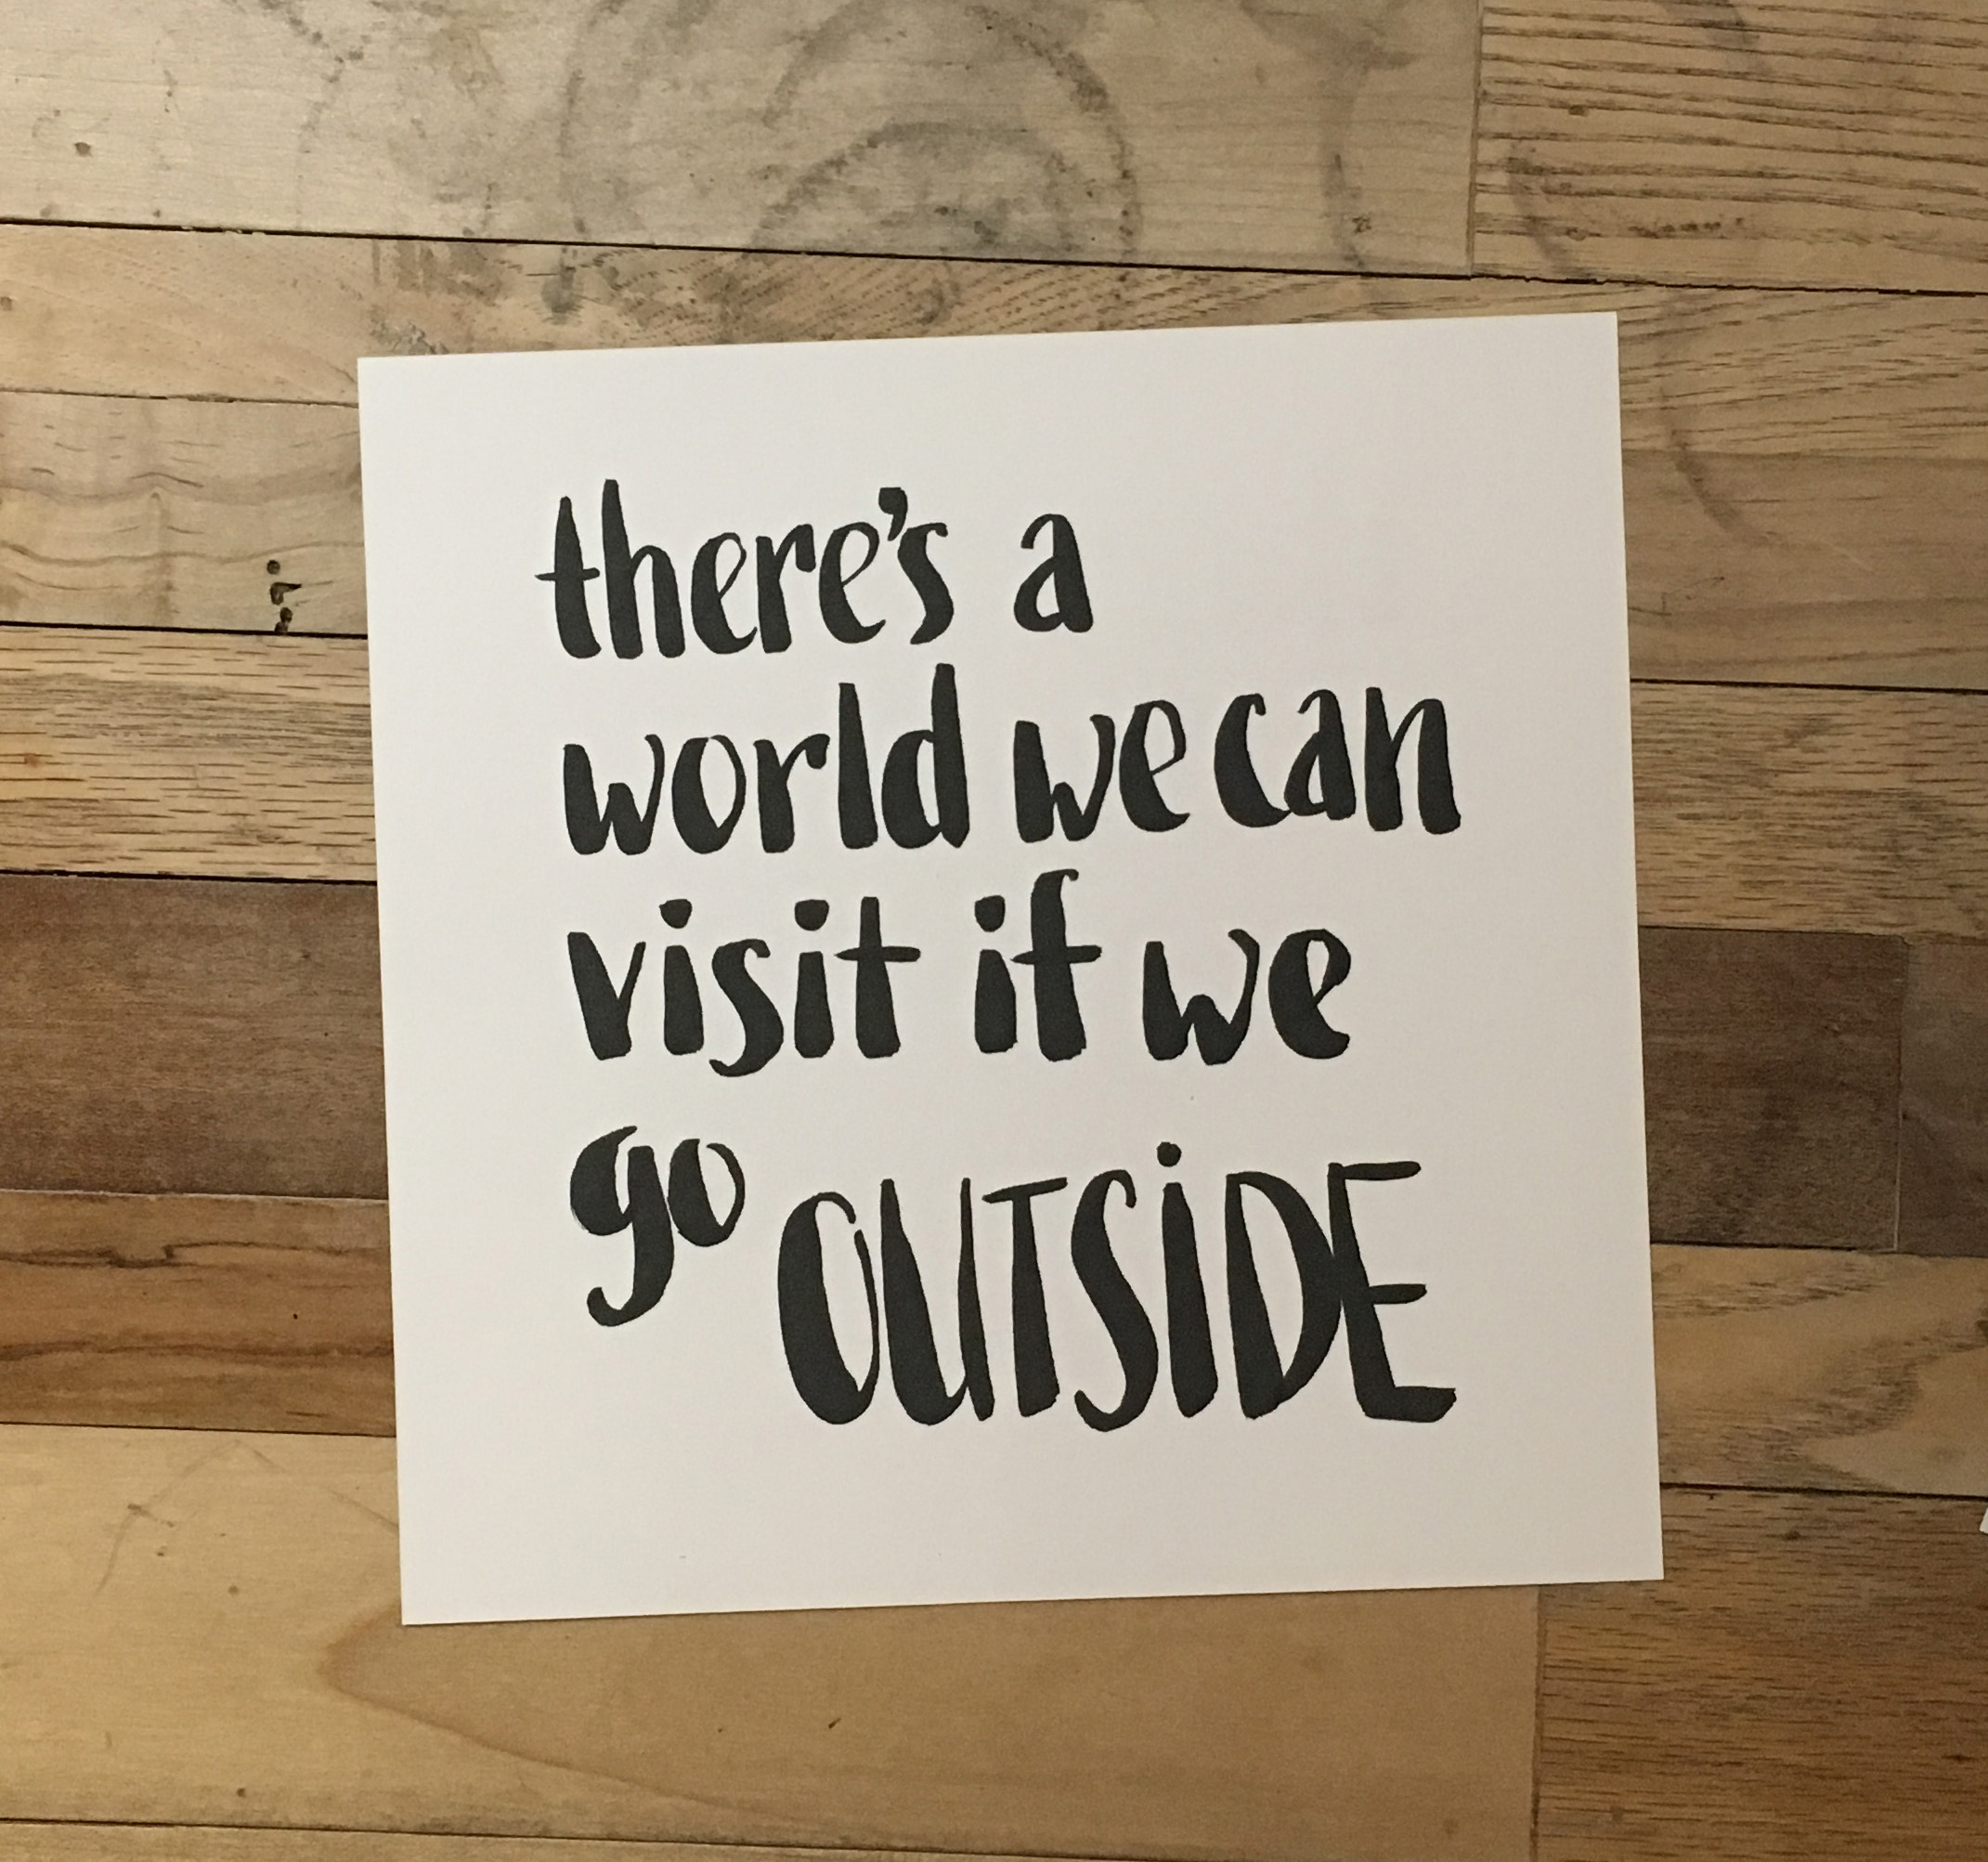 there's a
world we can
visit if we
go OUTSiDE